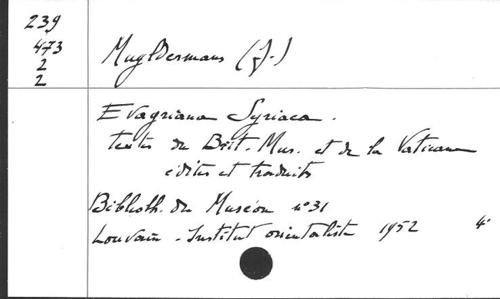 239
473
2
2
Muyldermans (J.)
Evagriana Syriaca.
textes du Brit. Mus. et de la Vaticane
édités et traduits
Biblioth. du Muséon n°31
Louvain - Institut orientaliste 1952 4°